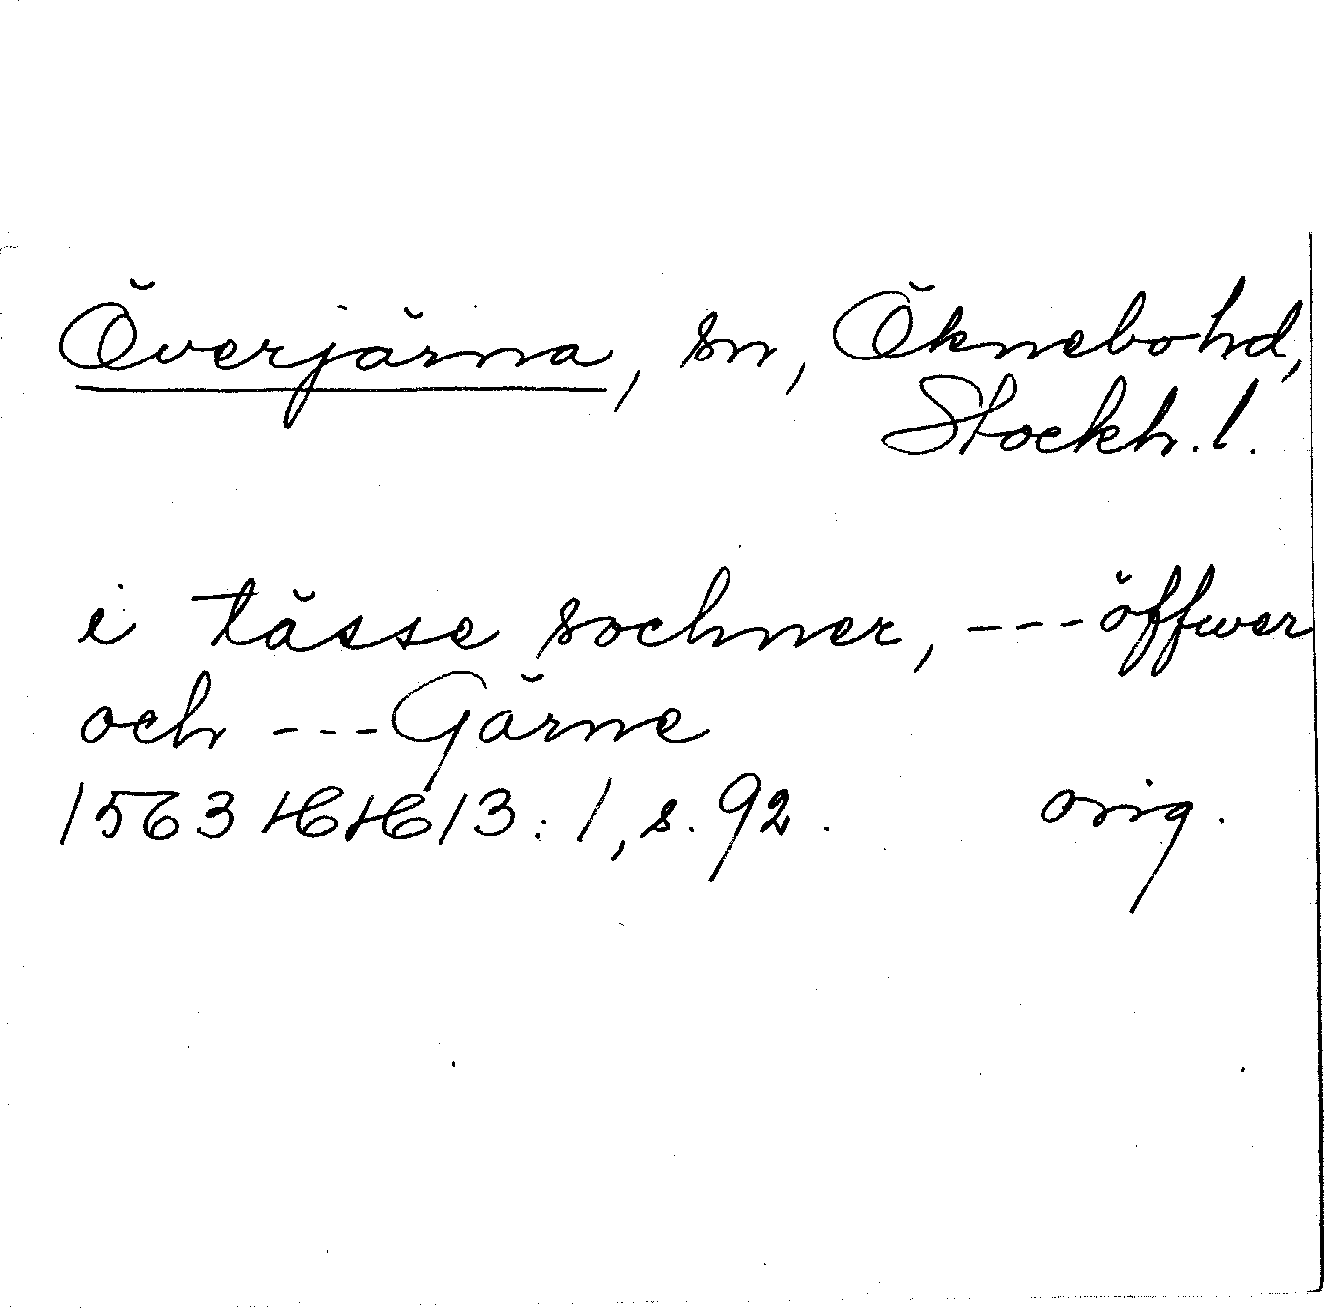 Överjärna, sn, Öknebo hd,
Stockh. l.
i tässe sochner, --- öffwer
och --- Gärne
1563 HH 13:1, s. 92. orig.